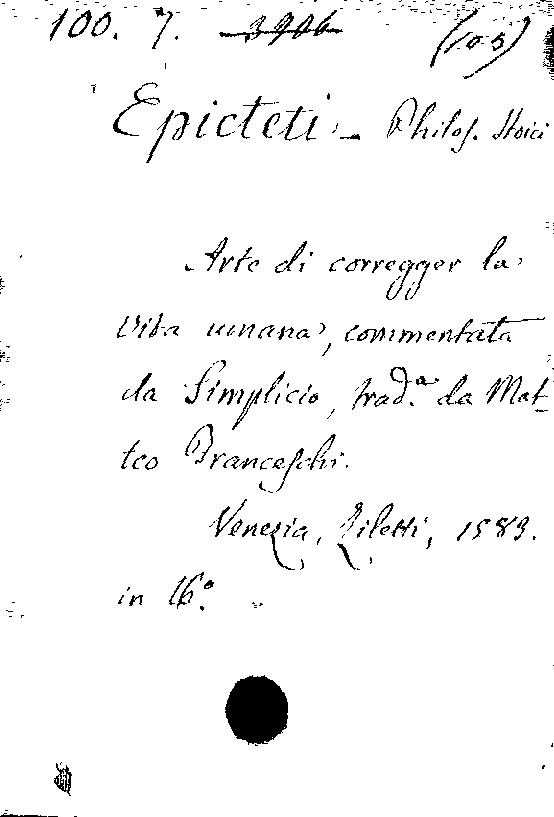 100. 7. 3906 (105)
Epicteti - Philos. Stoici
Arte di corregger la
vita umana, commentata
da Simplicio, trad.ª da Mat-
teo Franceschi.
Venezia, Ziletti, 1583.
in 16.º